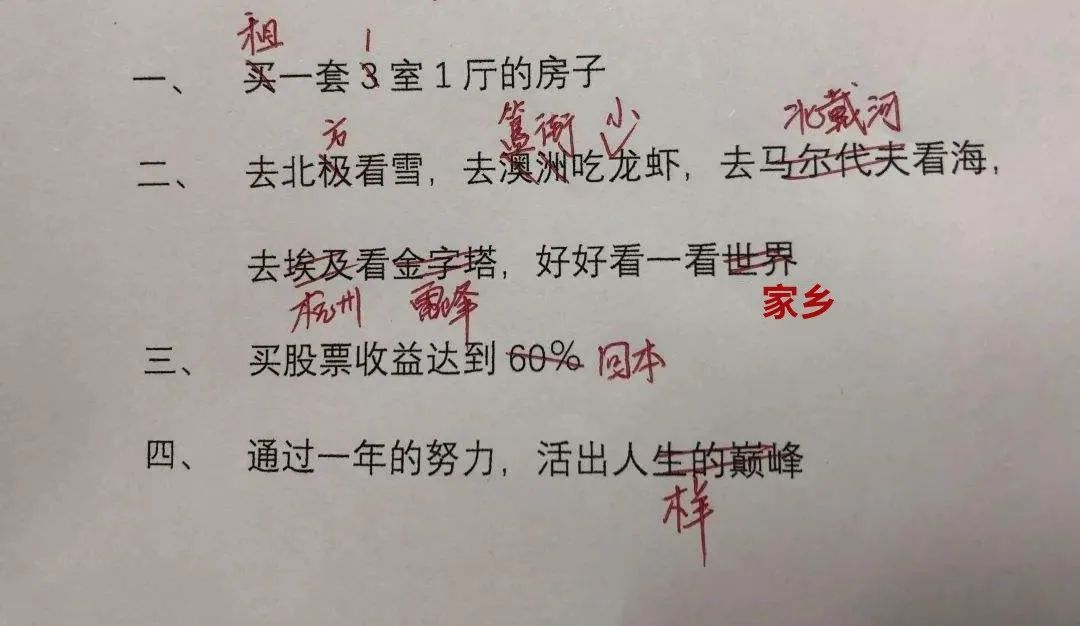 租 1
一、 买一套3室1厅的房子
方 簋街 小 北戴河
二、 去北极看雪，去澳洲吃龙虾，去马尔代夫看海，
去埃及看金字塔，好好看一看世界
杭州 雷峰 家乡
三、 买股票收益达到60% 回本
四、 通过一年的努力，活出人生的巅峰
样